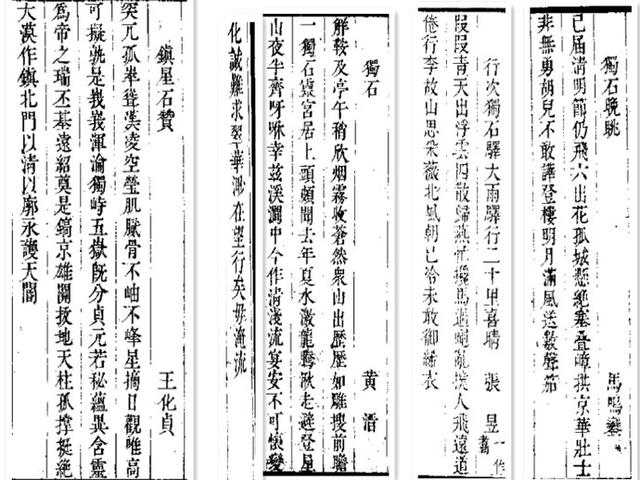 獨石晚眺　馬鳴蕭
己屆清明節仍飛六出花孤城懸絕塞疊嶂拱京華壯士
非無勇胡兒不敢譁登樓明月滿風送數聲笳
行次獨石驛大雨驛行二十里喜晴　張昱一作翥
段段青天出浮雲四散歸燕忙攙馬過蠅亂撲人飛遠道
倦行李故山思采薇北風朝已冷未敢御絺衣
獨石　黃溍
解鞍及亭午稍欣烟霧收蒼然衆山出歷歷如雕搜前瞻
一獨石靈宮居上頭頗聞去年夏水激龍騰湫走避登星
山夜半齊呀咻幸茲溪澗中今作清淺流宴安不可懷變
化誠難求翠華渺在望行矣毋淹流
鎮星石贊　王化貞
突兀孤拳聳漢凌空瑩肌臓骨不岫不峰星摘日觀唯高
可擬孰是峩峩渾淪獨峙五嶽旣分貞元若秘蘊異含靈
為帝之瑞丕基遠紹奠是鎬京雄關拔地天柱孤撐挺絕
大漠作鎮北門以清以廓永護天閽